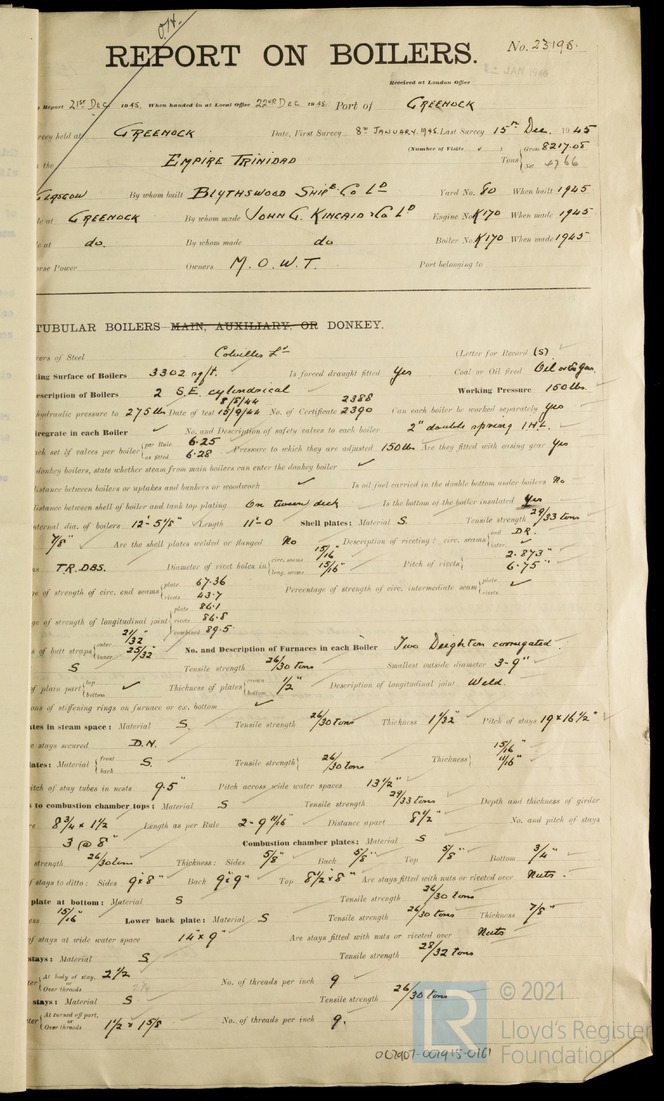 REPORT ON BOILERS.
No. 23196.
Received at London Office
Report 21ST DEC 1945, When handed in at Local Office 22ND DEC 1945. Port of GREENOCK
held at GREENOCK Date, First Survey 8TH JANUARY 1945. Last Survey 15TH Dec. 1945
(Number of Visits )
the EMPIRE TRINIDAD Tons Gross 8217.05 Net 4766
GLASGOW By whom built BLYTHSWOOD SHIPB. CO LD Yard No. 80 When built 1945
at GREENOCK By whom made JOHN G. KINCAID & CO LD Engine No. K170 When made 1945
at do. By whom made do Boiler No. K170 When made 1945
Power Owners M.O.W.T. Port belonging to
TUBULAR BOILERS MAIN, AUXILIARY, OR DONKEY.
of Steel Colvilles Ld (Letter for Record (S)
Surface of Boilers 3302 sq/ft. Is forced draught fitted Yes Coal or Oil fired Oil or Ex Gas.
Description of Boilers 2 S.E. cylindrical Working Pressure 150 lbs.
hydraulic pressure to 275 lbs Date of test No. of Certificate 2388 2390 Can each boiler be worked separately Yes
grate in each Boiler ✓ No. and Description of safety valves to each boiler 2" double spring I.H.L.
each set of valves per boiler per Rule 6.25 as fitted 6.28 Pressure to which they are adjusted 150 lbs Are they fitted with easing gear Yes
donkey boilers, state whether steam from main boilers can enter the donkey boiler ✓
distance between boilers or uptakes and bunkers or woodwork ✓ Is oil fuel carried in the double bottom under boilers No
distance between shell of boiler and tank top plating On tween deck Is the bottom of the boiler insulated Yes
internal dia. of boilers 12'-5 1/8" Length 11'-0 Shell plates: Material S. Tensile strength 29/33 tons
7/8" Are the shell plates welded or flanged No Description of riveting: circ. seams end D.R. inter. ✓
T.R.D.B.S. Diameter of rivet holes in circ. seams 15/16" long. seams 15/16" Pitch of rivets 2.873" 6.75"
of strength of circ. end seams plate 67.36 rivets 43.7 Percentage of strength of circ. intermediate seam plate rivets ✓
of strength of longitudinal joint plate 86.1 rivets 86.8 combined 89.5
of butt straps outer 21/32" inner 25/32" No. and Description of Furnaces in each Boiler Two Deighton corrugated.
S Tensile strength 26/30 tons Smallest outside diameter 3-9"
of plain part top bottom ✓ Thickness of plates crown bottom 1/2" Description of longitudinal joint Weld.
of stiffening rings on furnace or c.c. bottom ✓
plates in steam space: Material S. Tensile strength 26/30 tons Thickness 1 1/32" Pitch of stays 19 x 16 1/2"
stays secured D.N.
plates: Material front back S. Tensile strength 26/30 tons Thickness 15/16" 11/16"
pitch of stay tubes in nests 9.5" Pitch across wide water spaces 13 1/2"
to combustion chamber tops: Material S Tensile strength 29/33 tons Depth and thickness of girder
8 3/4 x 1 1/2 Length as per Rule 2-9 11/16" Distance apart 8 1/2" No. and pitch of stays
3 @ 8" Combustion chamber plates: Material S
strength 26/30 tons Thickness: Sides 5/8" Back 5/8" Top 5/8" Bottom 3/4"
of stays to ditto: Sides 9x8" Back 9x9" Top 8 1/2 x 8" Are stays fitted with nuts or riveted over Nuts.
plate at bottom: Material S Tensile strength 26/30 tons
15/16" Lower back plate: Material S Tensile strength 26/30 tons Thickness 7/8"
of stays at wide water space 14" x 9" Are stays fitted with nuts or riveted over Nuts
stays: Material S Tensile strength 28/32 tons
At body of stay, or Over threads 2 1/2 No. of threads per inch 9
stays: Material S Tensile strength 26/30 tons
At turned off part, or Over threads 1 1/2 x 1 5/8 No. of threads per inch 9.
© 2021
LR Lloyd's Register
Foundation
002907-002915-0161